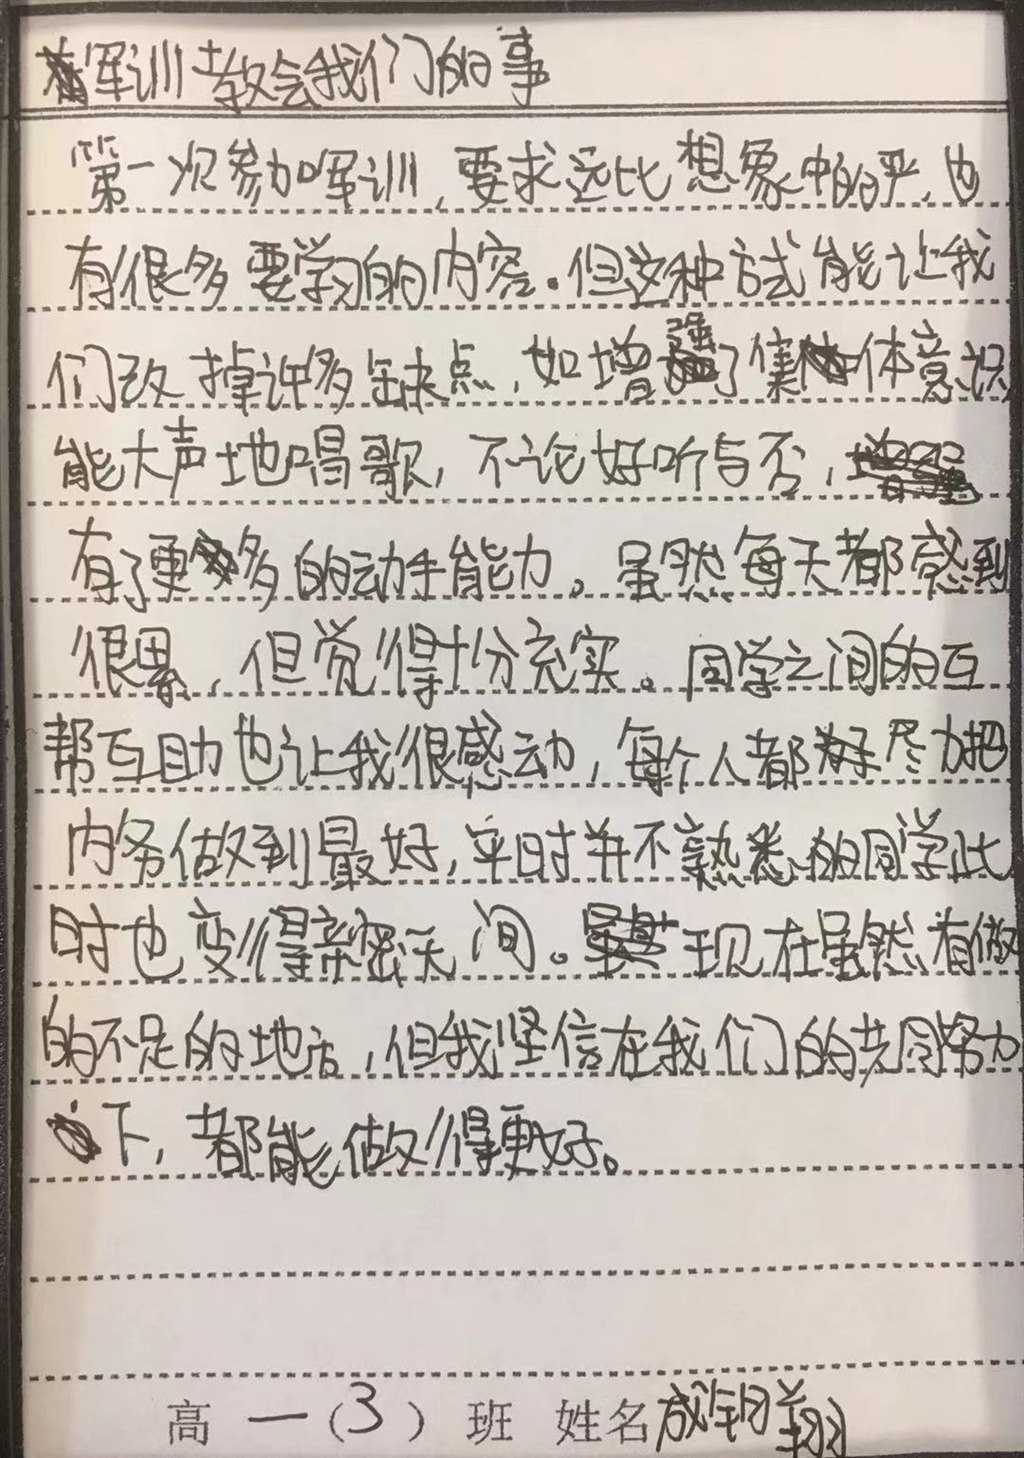 军训教会我们的事
第一次参加军训,要求远比想象中的严,也
有很多要学习的内容。但这种方式能让我
们改掉许多缺点,如增强了集体意识
能大声地唱歌,不论好听与否,
有了更多的动手能力。虽然每天都感到
很累,但觉得十分充实。同学之间的互
帮互助也让我很感动,每个人都尽力把
内务做到最好,平时并不熟悉的同学此
时也变得亲密无间。现在虽然有做
的不足的地方,但我坚信在我们的共同努力
下,都能做得更好。
高一(3)班 姓名成钥翔